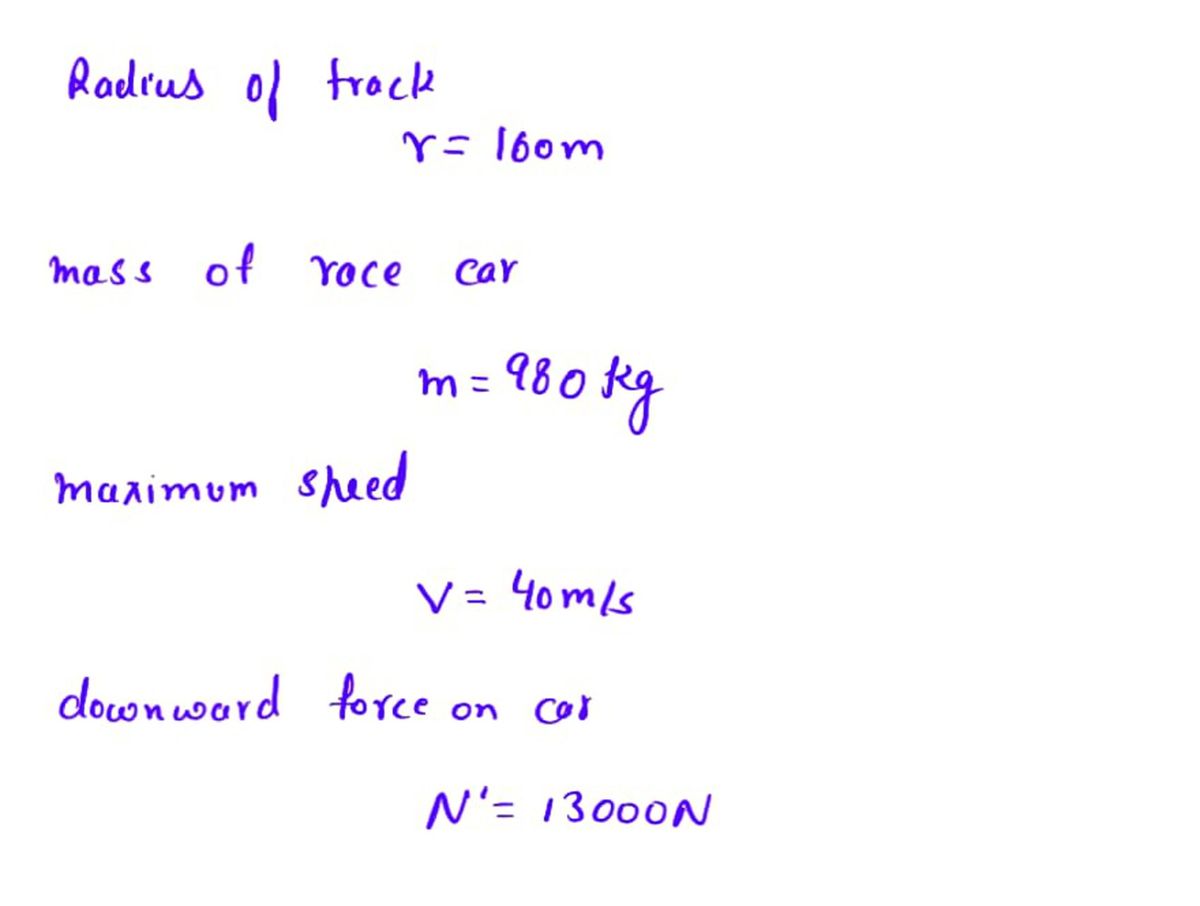 Radius of track
r = 160m
mass of race car
m = 980 kg
maximum speed
V = 40 m/s
downward force on car
N' = 13000N